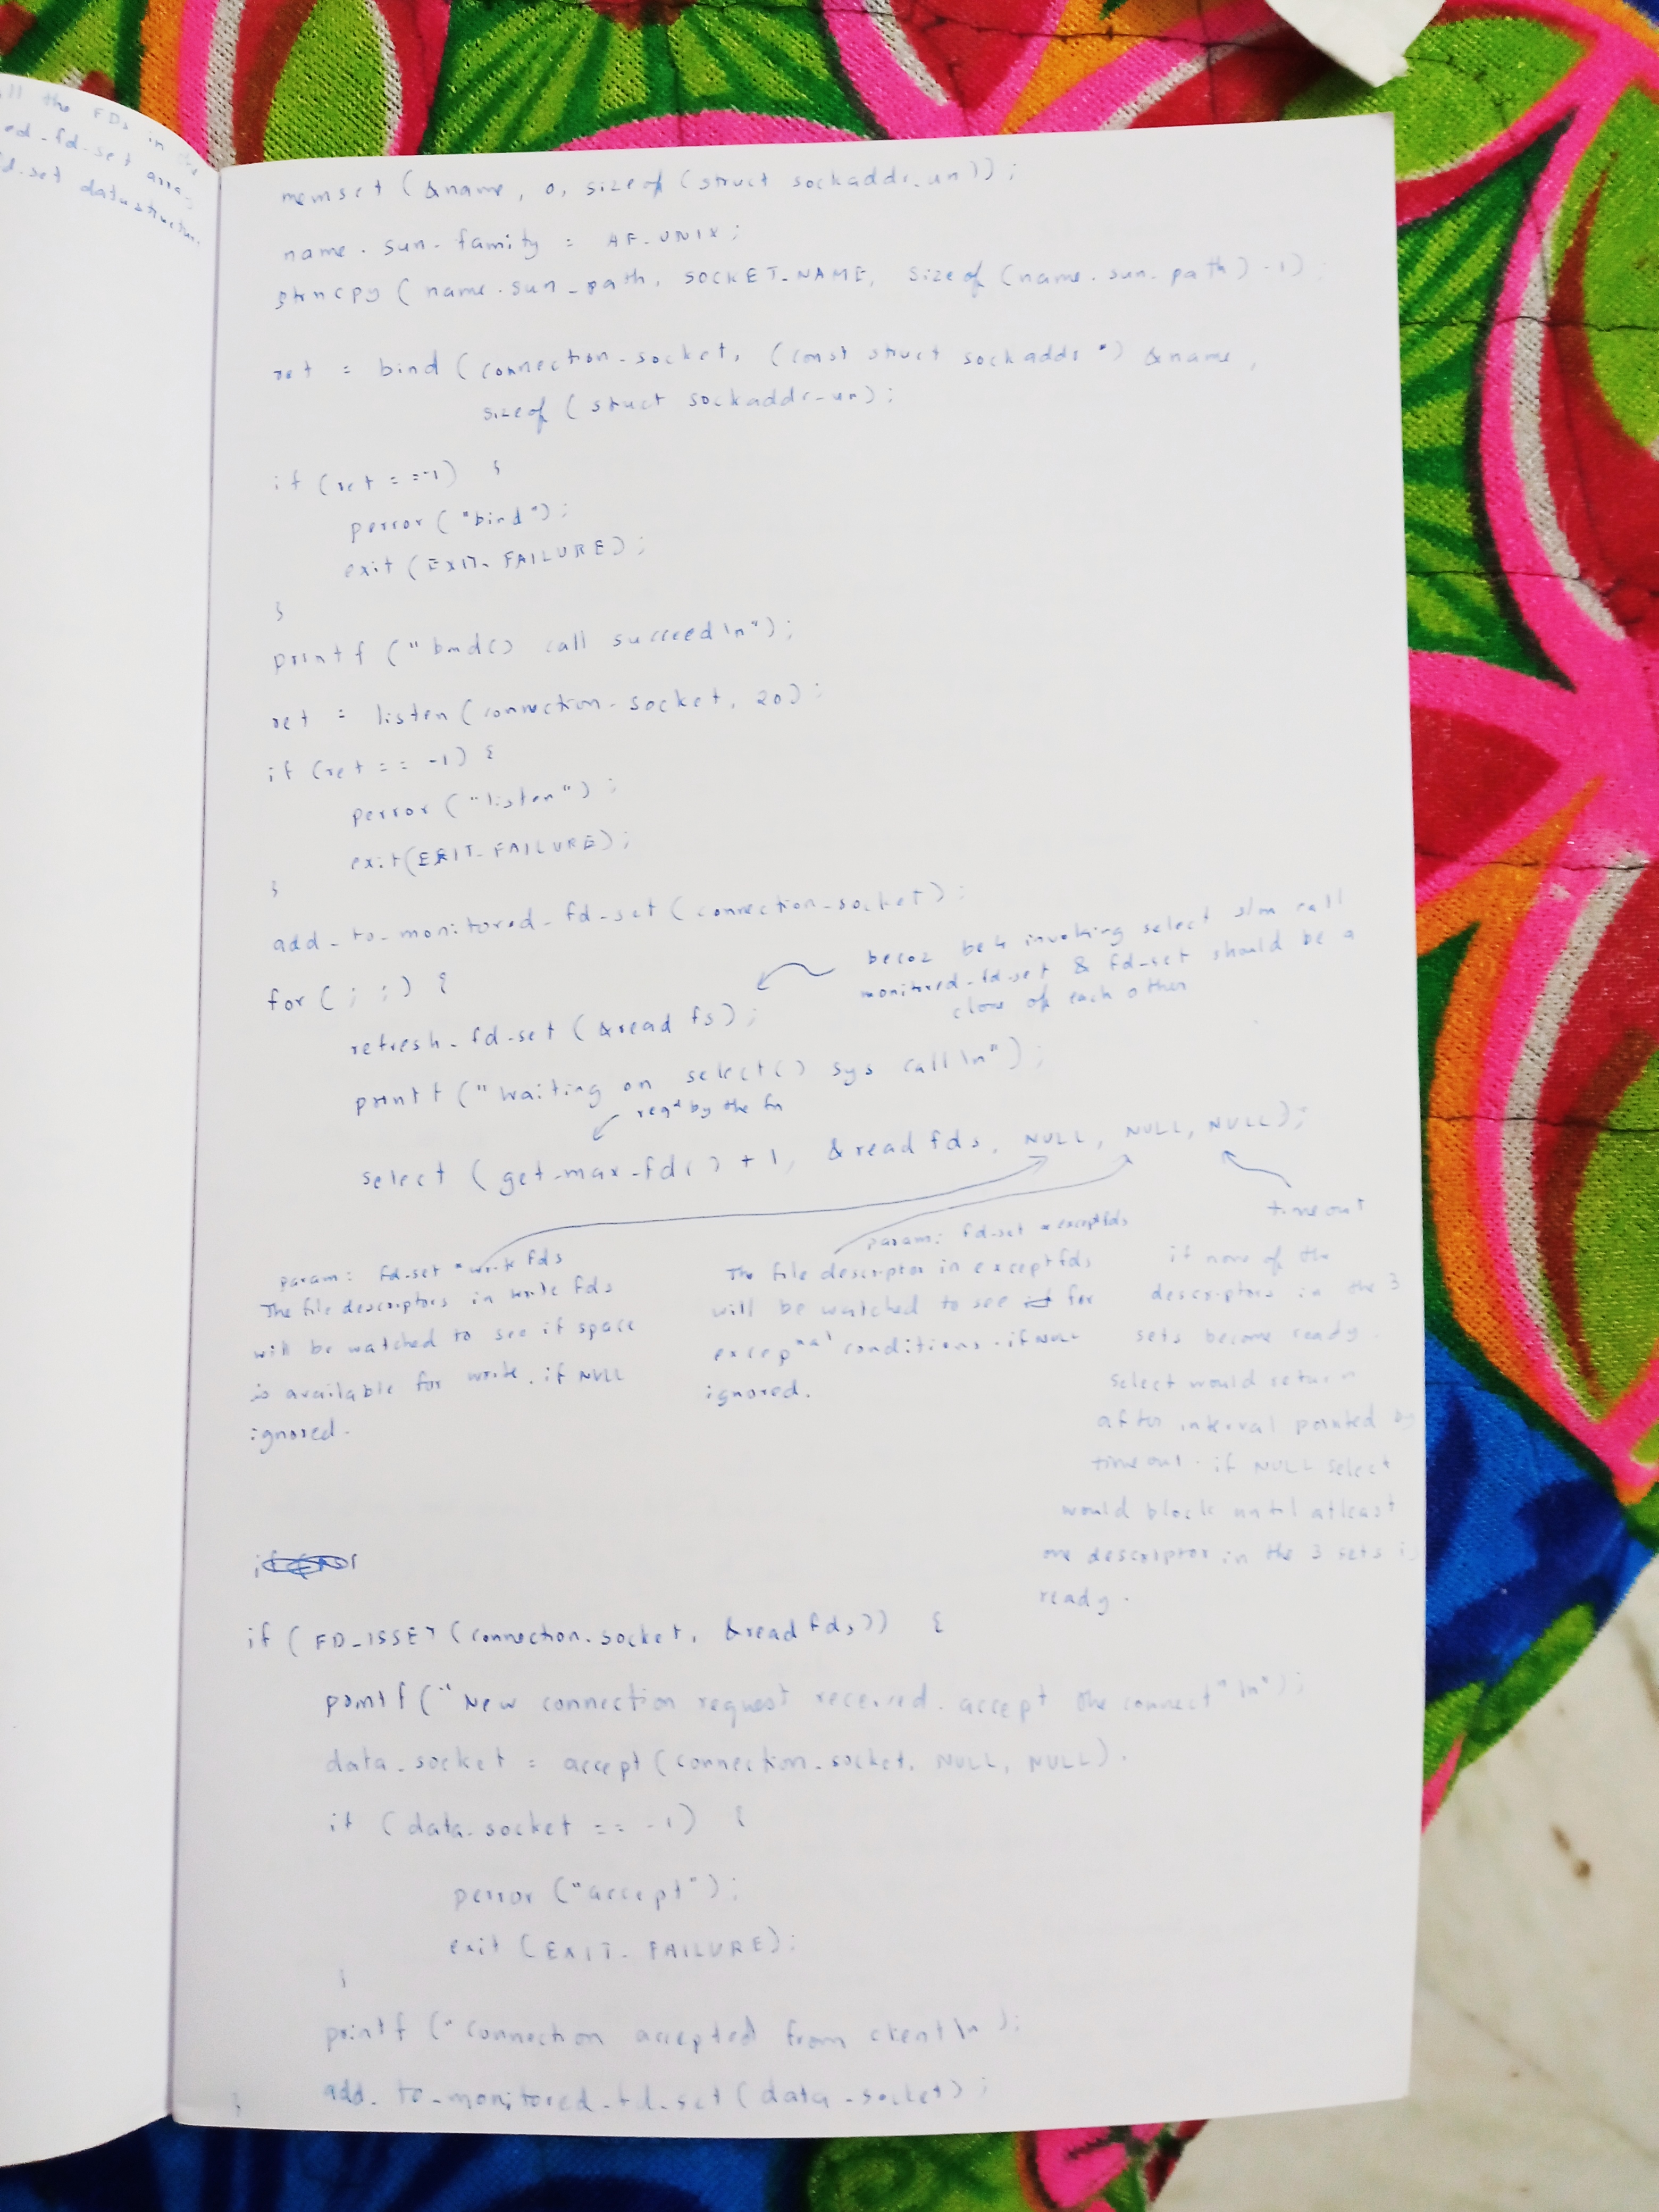 ll the FDs in the
ed_fd_set array
d_set datastructure.
memset (&name, 0, sizeof (struct sockaddr_un));
name.sun_family = AF_UNIX;
strncpy (name.sun_path, SOCKET_NAME, sizeof (name.sun_path) -1);
ret = bind (connection_socket, (const struct sockaddr *) &name,
sizeof (struct sockaddr_un);
if (ret == -1) {
perror ("bind");
exit (EXIT_FAILURE);
}
printf ("bind() call succeed\n");
ret = listen (connection_socket, 20);
if (ret == -1) {
perror ("listen");
exit(EXIT_FAILURE);
}
add_to_monitored_fd_set (connection_socket);
becoz be4 invoking select s/m call
monitored_fd_set & fd_set should be a
clone of each other
for (; ;) {
refresh_fd_set (&read fs);
printf ("Waiting on select() sys call\n");
reqd by the fn
select (get_max_fd() + 1, &read fds, NULL, NULL, NULL);
param: fd_set *write fds
The file descriptors in write fds
will be watched to see if space
is available for write. if NULL
ignored.
param: fd_set *exceptfds
The file descriptor in exceptfds
will be watched to see for
excepnal conditions. if NULL
ignored.
timeout
if none of the
descriptors in the 3
sets become ready.
select would return
after interval pointed by
timeout. if NULL select
would block until atleast
one descriptor in the 3 sets is
ready.
if (FD_ISSET (connection_socket, &read fds)) {
printf ("New connection request received. accept the connect" \n");
data_socket = accept (connection_socket, NULL, NULL).
if (data_socket == -1) {
perror ("accept");
exit (EXIT_FAILURE);
}
printf ("connection accepted from client\n );
add_to_monitored_fd_set (data_socket);
}